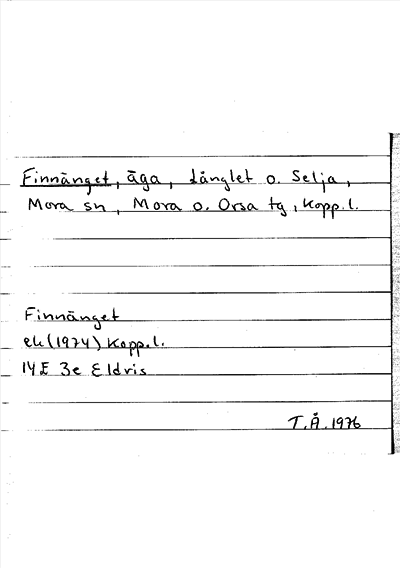 Finnänget, äga, Långlet o. Selja,
Mora sn, Mora o. Orsa tg, Kopp.l.
Finnänget
ek (1974) Kopp.l.
14E 3e Eldris
T.Å. 1976